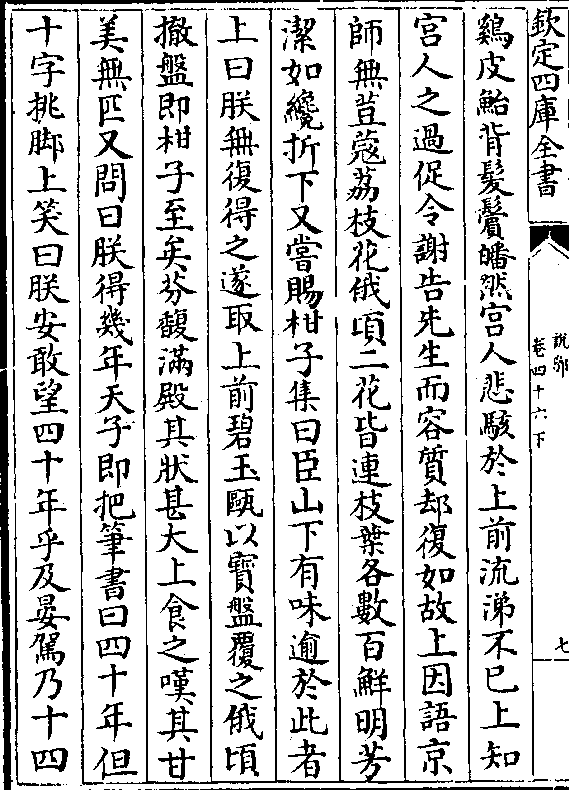 欽定四庫全書
說郛
卷四十六下
七
鷄皮鮐背髮鬢皤然宫人悲駭於上前流涕不已上知
宫人之過促令謝告先生而容質却復如故上因語京
師無荳蔻荔枝花俄頃二花皆連枝葉各數百鮮明芳
潔如纔折下又嘗賜柑子集曰臣山下有味逾於此者
上曰朕無復得之遂取上前碧玉甌以寳盤覆之俄頃
撤盤即柑子至矣芬馥滿殿其狀甚大上食之嘆其甘
美無匹又問曰朕得幾年天子即把筆書曰四十年但
十字挑脚上笑曰朕安敢望四十年乎及晏駕乃十四